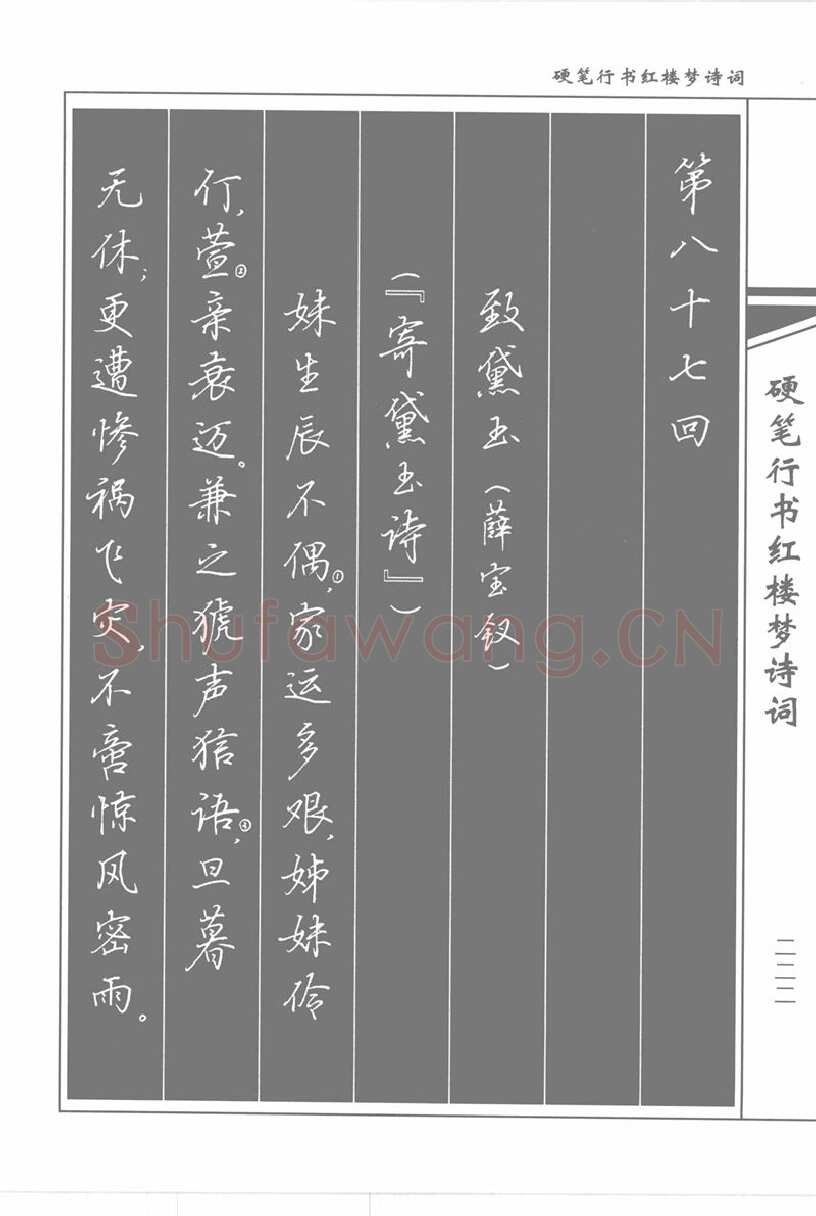 硬笔行书红楼梦诗词
第八十七回
致黛玉（薛宝钗）
（『寄黛玉诗』）
妹生辰不偶①，家运多艰，姊妹伶
仃，萱②亲衰迈。兼之猇声狺语④，旦暮
无休；更遭惨祸飞灾，不啻惊风密雨。
硬笔行书红楼梦诗词
二二二
Shufawang.CN